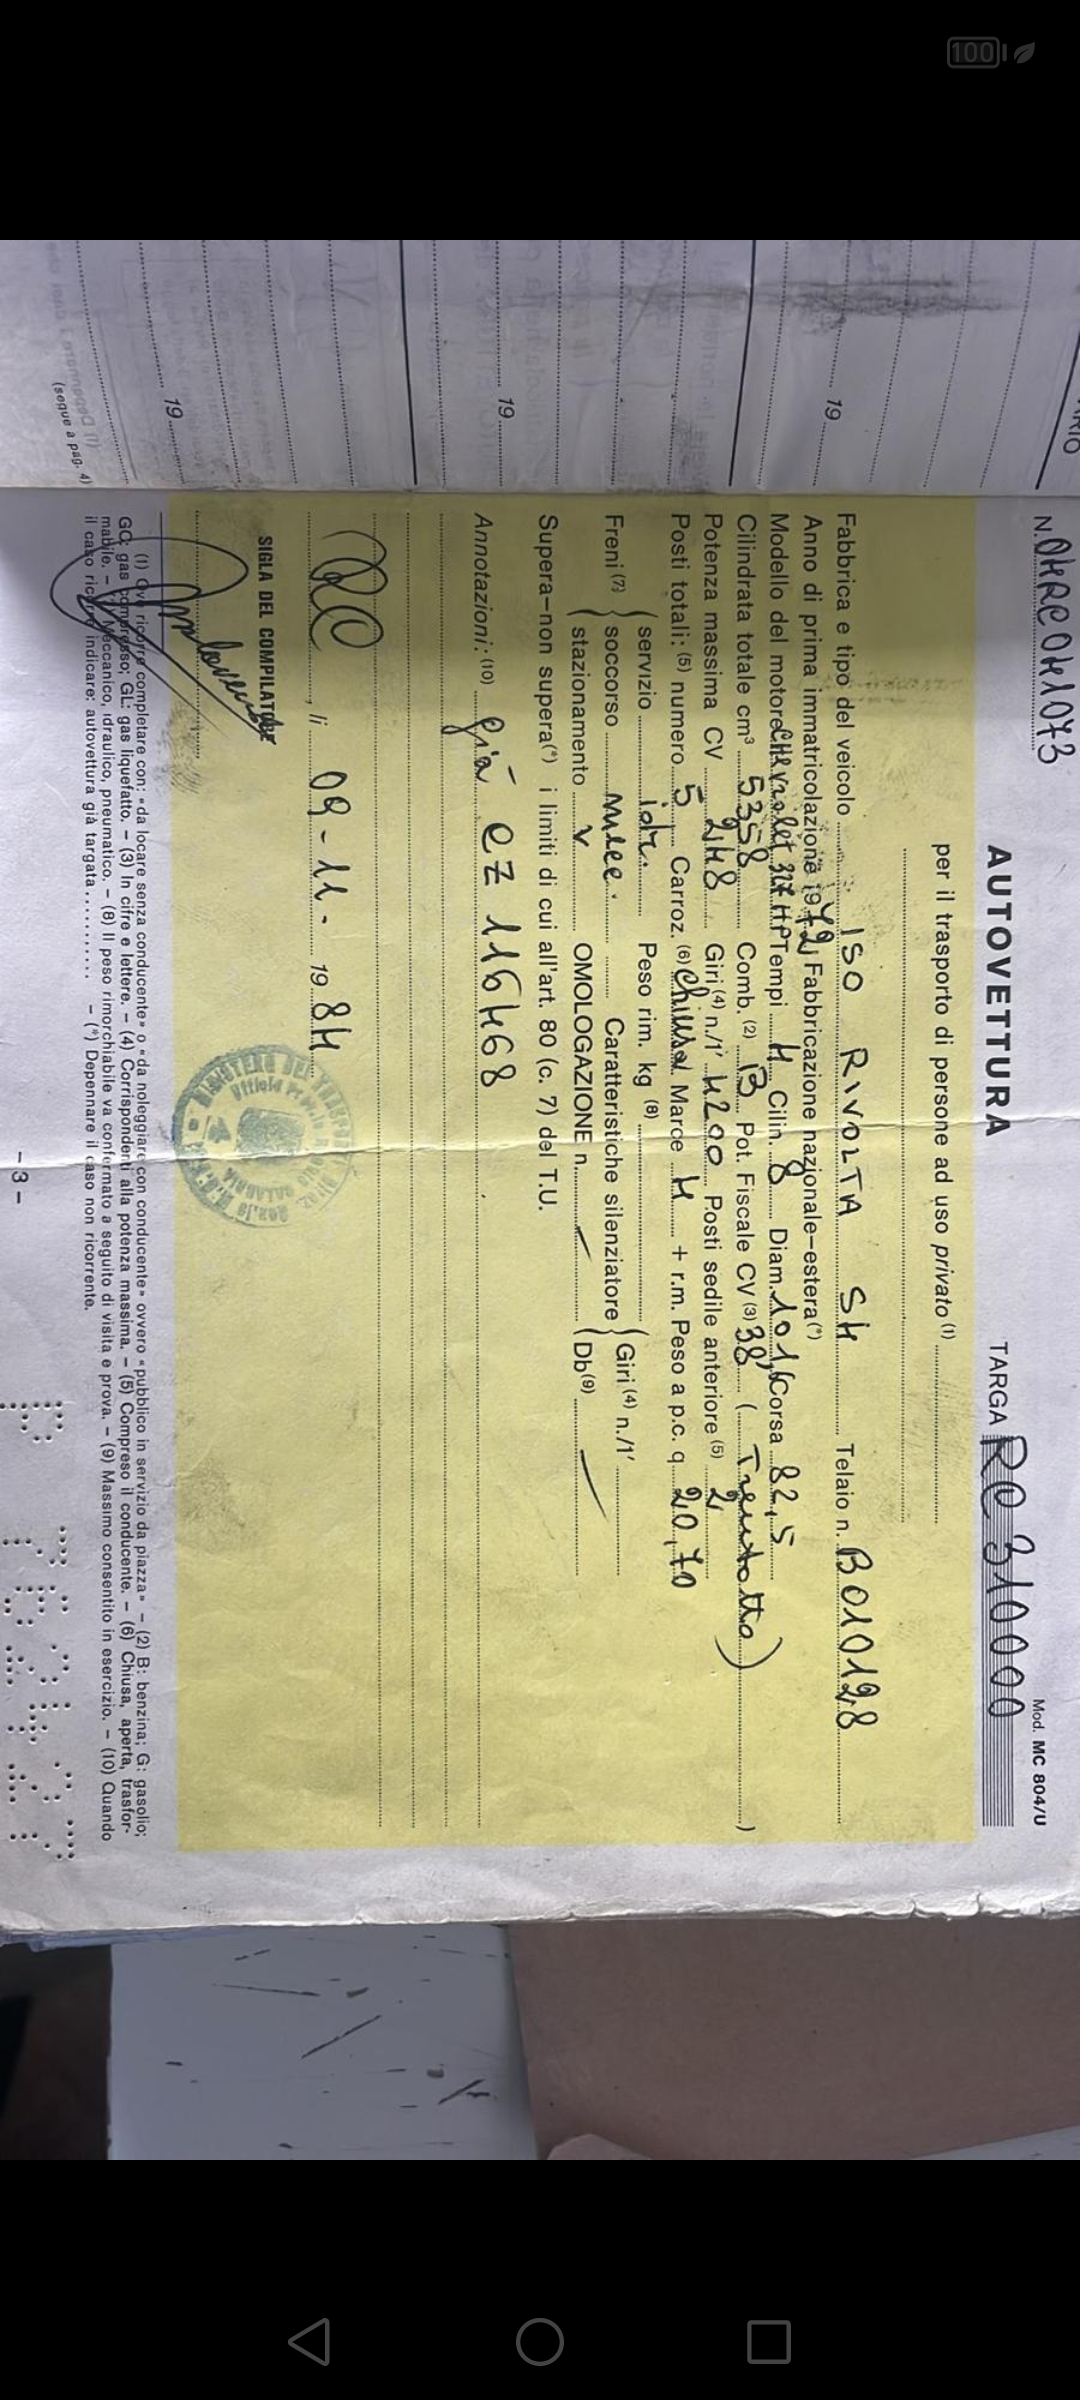 100
N. OHRC OH1073
Mod. MC 804/U
AUTOVETTURA
TARGA RC 310000
per il trasporto di persone ad uso privato (1)
Fabbrica e tipo del veicolo ISO RIVOLTA S4 Telaio n. B010128
Anno di prima immatricolazione 1972 Fabbricazione nazionale-estera(*)
Modello del motore Chevrolet HP Tempi 4 Cilin. 8 Diam. 101,6 Corsa 82,5
Cilindrata totale cm³ 5358 Comb. (2) B Pot. Fiscale CV (3) 38 (Trentotto)
Potenza massima CV 248 Giri (4) n./1' 4200 Posti sedile anteriore (5) 2
Posti totali: (5) numero 5 Carroz. (6) chiusa Marce 4 + r.m. Peso a p.c. q. 20,70
Freni (7) servizio idr. Peso rim. kg (8)
soccorso mecc. Caratteristiche silenziatore Giri (4) n./1'
stazionamento v OMOLOGAZIONE n. — Db (9) —
Supera-non supera(*) i limiti di cui all'art. 80 (c. 7) del T.U.
Annotazioni: (10) già CZ 116468
RC, li 09-11- 1984
SIGLA DEL COMPILATORE
(1) Ove ricorre completare con: «da locare senza conducente» o «da noleggiare con conducente» ovvero «pubblico in servizio da piazza» - (2) B: benzina; G: gasolio;
GC: gas compresso; GL: gas liquefatto. - (3) In cifre e lettere. - (4) Corrispondenti alla potenza massima. - (5) Compreso il conducente. - (6) Chiusa, aperta, trasfor-
mabile. - (7) Meccanico, idraulico, pneumatico. - (8) Il peso rimorchiabile va conformato a seguito di visita e prova. - (9) Massimo consentito in esercizio. - (10) Quando
il caso ricorre indicare: autovettura già targata.......... - (*) Depennare il caso non ricorrente.
- 3 -
19
19
19
(segue a pag. 4)